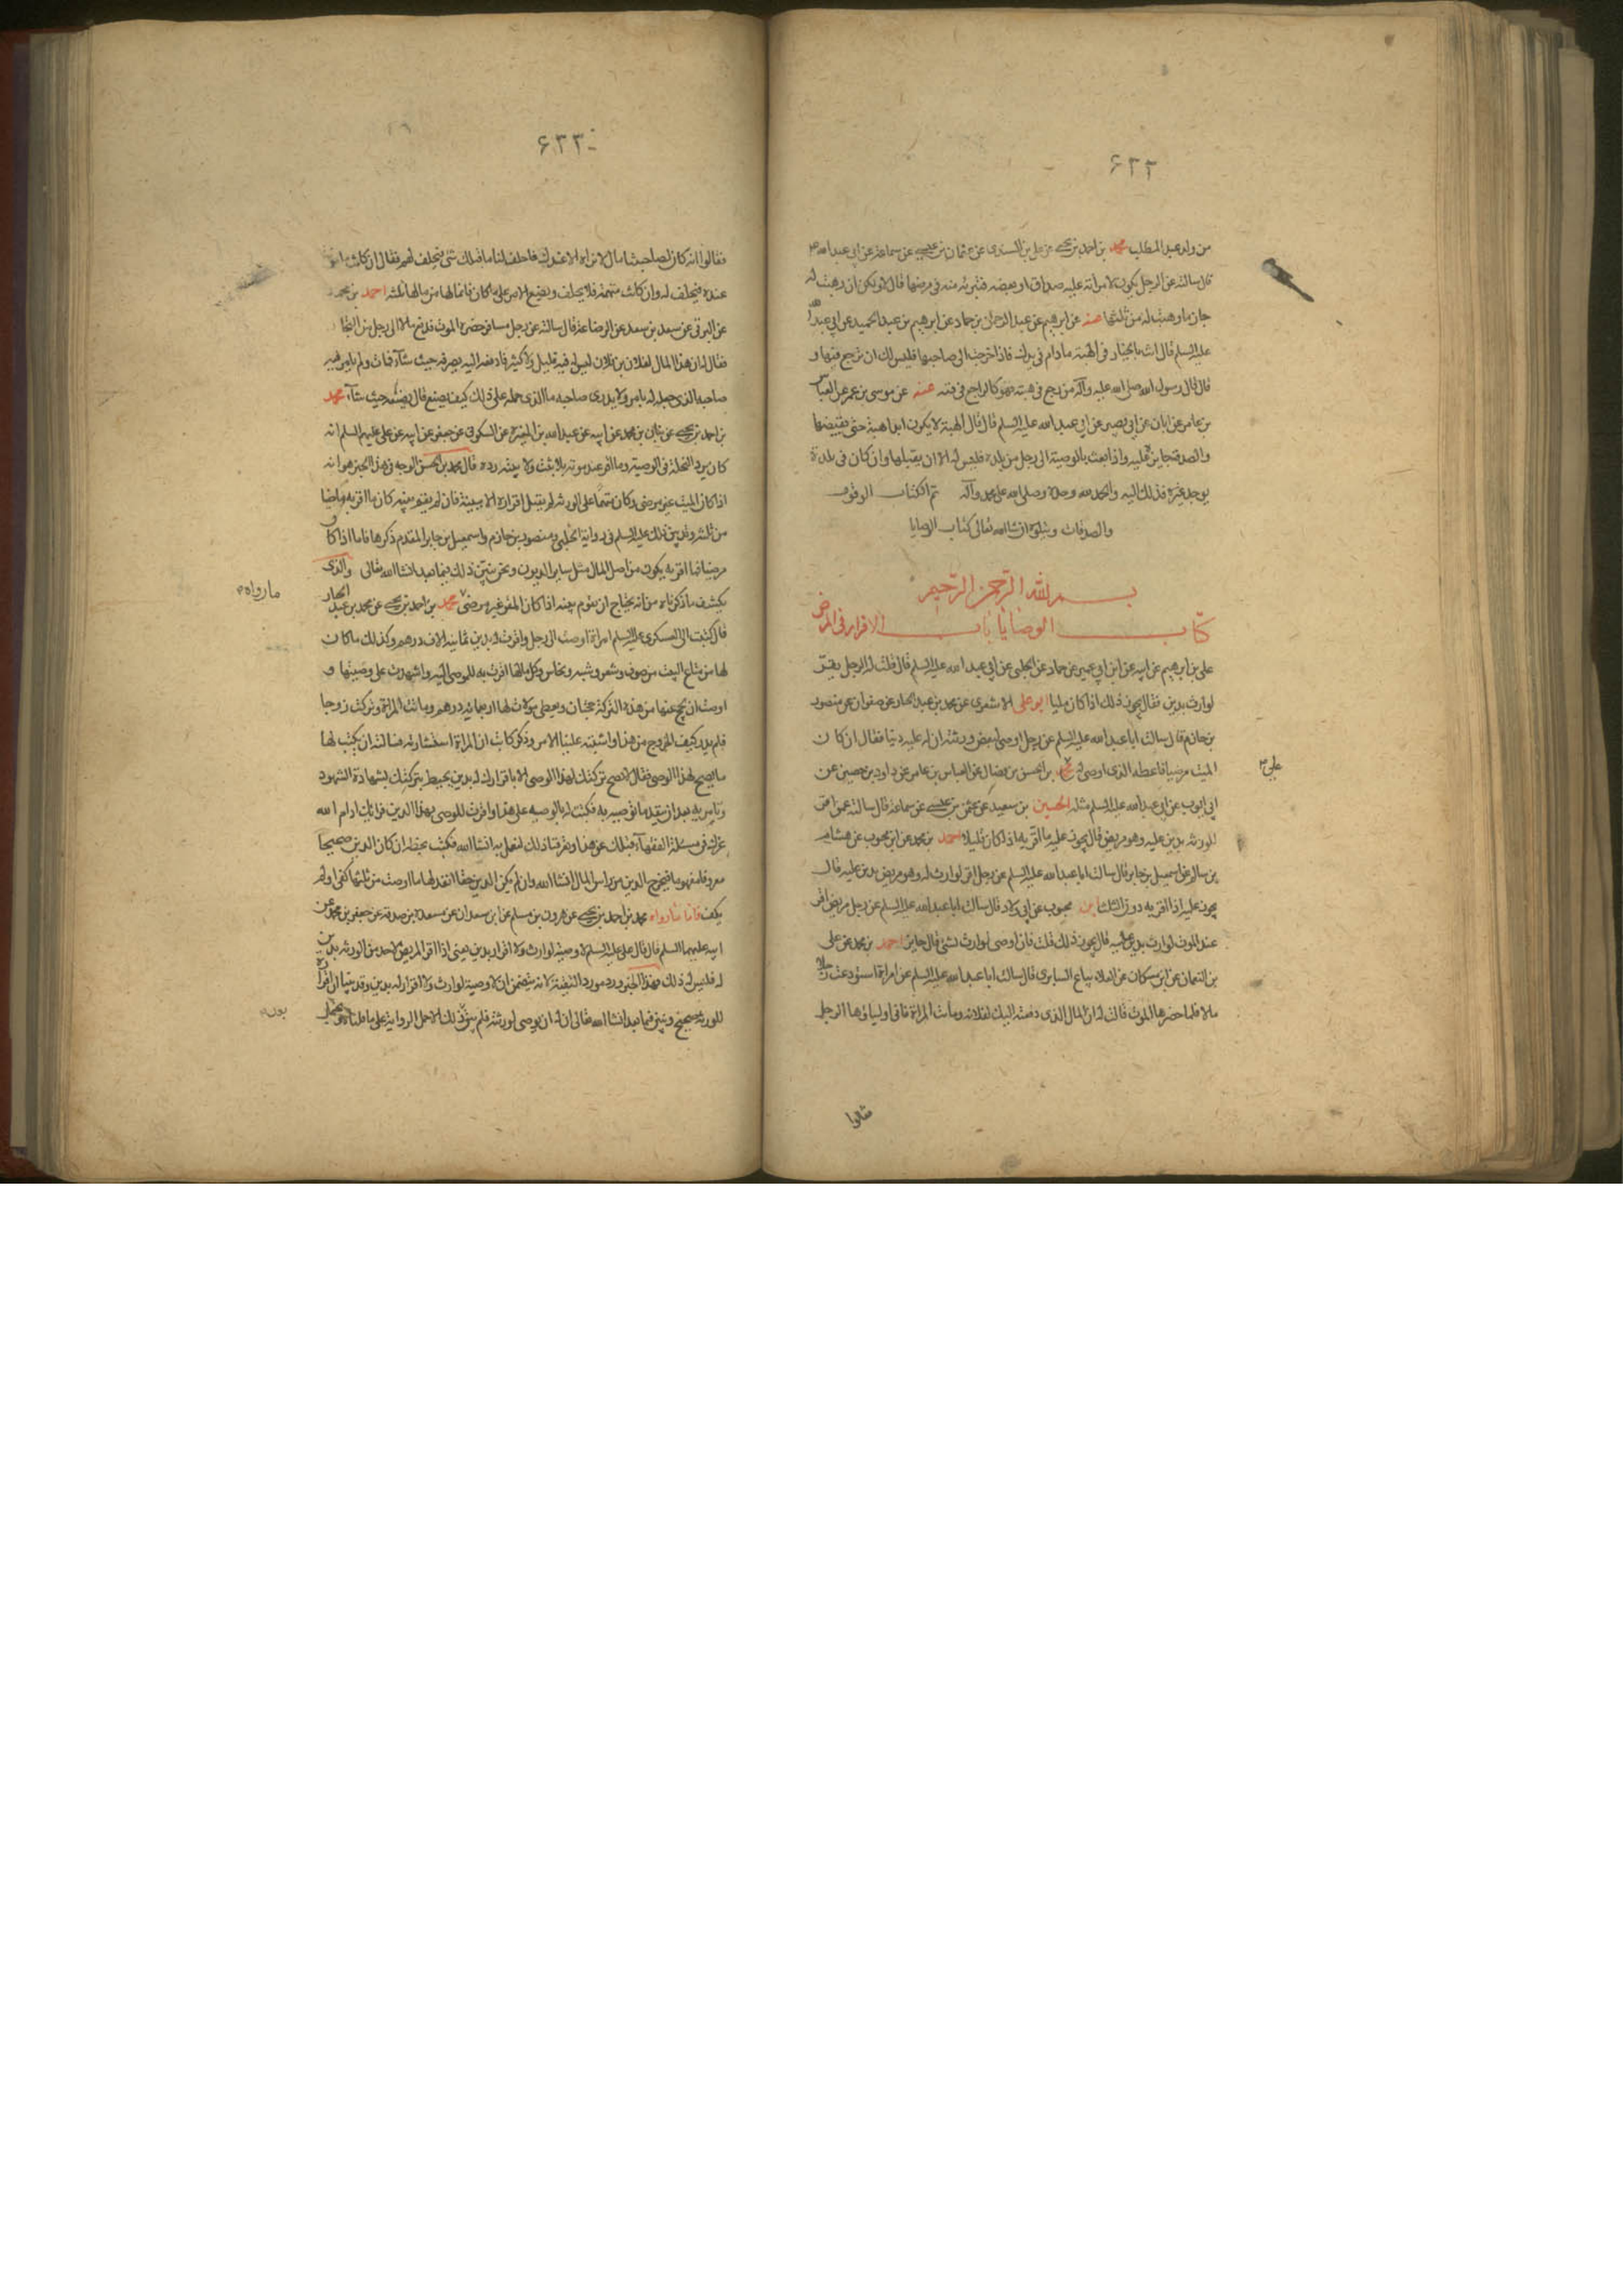 ۶۲۲
من ولد عبد المطلب محمد بن احمد بن يحيى عن علي بن السندى عن عثمان بن عيسى عن سماعة عن ابى عبد الله ع
قال سالته عن الرجل يكون لامراته عليه صداق او بعضه فتبرئه منه فى مرضها قال لا ولكن ان وهبت له
جاز ما وهبت له من ثلثها عنه عن ابرهيم عن عبد الرحمن بن حماد عن ابرهيم بن عبد الحميد عن ابي عبد الله
عليه السلم قال انت بالخيار فى الهبة ما دام فى يدك فاذا خرجت الى صاحبها فليس لك ان ترجع فيها و
قال قال رسول الله صلى الله عليه وآله من رجع فى هبته فهو كالراجع فى قيئه عنه عن موسى بن عمر عن العباس
بن عامر عن ابان عن ابي بصير عن ابي عبد الله عليه السلم قال قال الهبة لا يكون ابدا هبة حتى يقبضها
والصدقة جايزة عليه واذا بعث بالوصية الى رجل من بلده فليس له الا ان يقبلها وان كان فى بلدة
يوجد غيره فذلك اليه والحمد لله وحده وصلى الله على محمد وآله تم الكتاب الوقوف
والصدقات ويتلوه ان شا الله تعالى كتاب الوصايا
بسم الله الرحمن الرحيم
كتاب الوصايا باب الاقرار فى المرض
على بن ابرهيم عن ابيه عن ابن ابي عمير عن حماد عن الحلبي عن ابي عبد الله عليه السلم قال قلت له الرجل يقر
لوارث بدين فقال يجوز ذلك اذا كان مليا ابو على الاشعرى عن محمد بن عبد الجبار عن صفوان عن منصور
بن حازم قال سالت ابا عبد الله عليه السلم عن رجل اوصى لبعض ورثته ان له عليه دينا فقال ان كان
الميت مرضيا فاعطه الذى اوصى له بن الحسن بن فضال عن العباس بن عامر عن داود بن حصين عن
ابي ايوب عن ابي عبد الله عليه السلم مثله الحسين بن سعيد عن عثمن بن عيسى عن سماعة قال سالته عمن اقر
للورثة بدين عليه وهو مريض قال يجوز عليه ما اقر به اذا كان قليلا احمد بن محمد عن ابن محبوب عن هشام
بن سالم عن اسمعيل بن جابر قال سالت ابا عبد الله عليه السلم عن رجل اقر لوارث له وهو مريض بدين عليه قال
يجوز عليه اذا اقر به دون الثلث ابن محبوب عن ابي ولاد قال سالت ابا عبد الله عليه السلم عن رجل مريض اقر
عند الموت لوارث بدين عليه قال يجوز ذلك قلت فان اوصى لوارث بشئ قال جايز احمد بن محمد عن على
بن النعمان عن ابن مسكان عن العلاء بياع السابرى قال سالت ابا عبد الله عليه السلم عن امراة استودعت رجلا
مالا فلما حضرها الموت قالت له ان المال الذى دفعته اليك لفلانة وماتت المراة فاتى اولياؤها الرجل
علي
فقالوا
۶۲۳
فقالوا انه كان لصاحبتنا مال لا نراه الا عندك فاحلف لنا ما قبلك شئ فيحلف لهم فقال ان كانت مامونة
عنده فيحلف له وان كانت متهمة فلا يحلف ويضع الامر على ما كان فانما لها من مالها ثلثه احمد بن محمد
عن البرقى عن سعد بن سعد عن الرضا ع قال سالته عن رجل مسافر حضره الموت فدفع مالا الى رجل من التجار
فقال له ان هذا المال لفلان بن فلان ليس لى فيه قليل ولا كثير فادفعه اليه يصرفه حيث شآء فمات ولم يامر فيه
صاحبه الذى جعله له بامر ولا يدرى صاحبه ما الذى حمله على ذلك كيف يصنع قال يضعه حيث شآء محمد
بن احمد بن يحيى عن بنان بن محمد عن ابيه عن عبد الله بن المغيرة عن السكونى عن جعفر عن ابيه عن على عليهم السلم انه
كان يرد النحلة فى الوصية وما اقر عند موته بلا ثبت ولا بينة رده قال محمد بن الحسن الوجه فى هذا الخبر هو انه
اذا كان الميت غير مرضى وكان متهما على الورثة لم يقبل اقراره الا ببينة فان لم يقم بينة كان ما اقر به ماضيا
من ثلثه وقد بين ذلك عليه السلم فى رواية الحلبى ومنصور بن حازم واسمعيل بن جابر المقدم ذكرها فاما اذا كان
مرضيا فما اقر به يكون من اصل المال مثل ساير الديون ونحن نبين ذلك فيما بعد انشا الله تعالى والذى
يكشف ما ذكرناه من انه يحتاج ان يقوم بينة اذا كان المقر غير مرضى محمد بن احمد بن يحيى عن محمد بن عبد الجبار
قال كتبت الى العسكرى عليه السلم امراة اوصت الى رجل واقرت له بدين ثمانية الاف درهم وكذلك ما كان
لها من متاع البيت من صوف وشعر وشبه ونحاس وكل ما لها اقرت به للموصى اليه واشهدت على وصيتها و
اوصت ان يحج عنها من هذه التركة حجتان ويعطى مولاة لها اربعمائة درهم وماتت المراة وتركت زوجا
فلم يدر كيف الخروج من هذا واشتبه علينا الامر وذكر كاتب ان المراة استشارته فسالته ان يكتب لها
ما يصح لهذا الوصى فقال لا تصح تركتك لهذا الوصى الا باقرارك له بدين يحيط بتركتك بشهادة الشهود
وتامريه بعد ان ينفذ ما توصيه به فكتبت له بالوصية على هذا واقرت للوصى بهذا الدين فرايك ادام الله
عزك فى مسئلة الفقهآء قبلك عن هذا وتعرفنا ذلك لنعمل به انشا الله فكتب بخطه ان كان الدين صحيحا
معروفا مفهوما فيخرج الدين من راس المال انشا الله وان لم يكن الدين حقا انفذ لها ما اوصت من ثلثها كفى او لم
يكف فاما ما رواه محمد بن احمد بن يحيى عن هرون بن مسلم عن ابن سعدان عن مسعدة بن صدقة عن جعفر بن محمد عن
ابيه عليهما السلم قال قال على عليه السلم لا وصية لوارث ولا اقرار بدين يعنى اذا اقر المريض لاحد من الورثة بدين
له فليس له ذلك فهذا الخبر ورد مورد التقية لانه يتضمن ان لا وصية لوارث ولا اقرار له بدين وقد بينا ان اقراره
للورثة صحيح ونبين فيما بعد انشا الله تعالى ان له ان يوصى لورثته فلم يبق ذلك الا حمل الرواية على ما قلناه
ما رواه